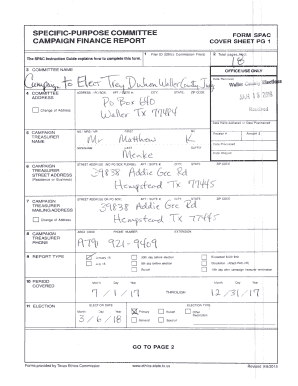 SPECIFIC-PURPOSE COMMITTEE FORM SPAC
CAMPAIGN FINANCE REPORT COVER SHEET PG 1
The SPAC Instruction Guide explains how to complete this form.
1 Filer ID (Ethics Commission Filers)
2 Total pages filed:
18
3 COMMITTEE NAME
OFFICE USE ONLY
Campaign to Elect Trey Duhon Waller County Judge
Date Received
4 COMMITTEE ADDRESS
ADDRESS / PO BOX; APT / SUITE #; CITY; STATE; ZIP CODE
Po Box 610
Waller Tx 77484
Change of Address
Received
5 CAMPAIGN TREASURER NAME
MS / MRS / MR FIRST MI
Mr Matthew K
NICKNAME LAST SUFFIX
Menke
Receipt # Amount $
Date Processed
Date Imaged
6 CAMPAIGN TREASURER STREET ADDRESS
(Residence or Business)
STREET ADDRESS (NO PO BOX PLEASE); APT / SUITE #; CITY; STATE; ZIP CODE
39838 Addie Gee Rd
Hempstead Tx 77445
7 CAMPAIGN TREASURER MAILING ADDRESS
Change of Address
STREET ADDRESS OR PO BOX; APT / SUITE #; CITY; STATE; ZIP CODE
39838 Addie Gee Rd
Hempstead Tx 77445
8 CAMPAIGN TREASURER PHONE
AREA CODE PHONE NUMBER EXTENSION
979 921-9409
9 REPORT TYPE
January 15 30th day before election Exceeded $500 limit
July 15 8th day before election Dissolution (Attach PAC-DR)
Runoff 10th day after campaign treasurer termination
10 PERIOD COVERED
Month Day Year Month Day Year
7 / 1 / 17 THROUGH 12/31/17
11 ELECTION
ELECTION DATE ELECTION TYPE
Month Day Year
3/6/18
Primary Runoff Other
Description
General Special
GO TO PAGE 2
Forms provided by Texas Ethics Commission www.ethics.state.tx.us